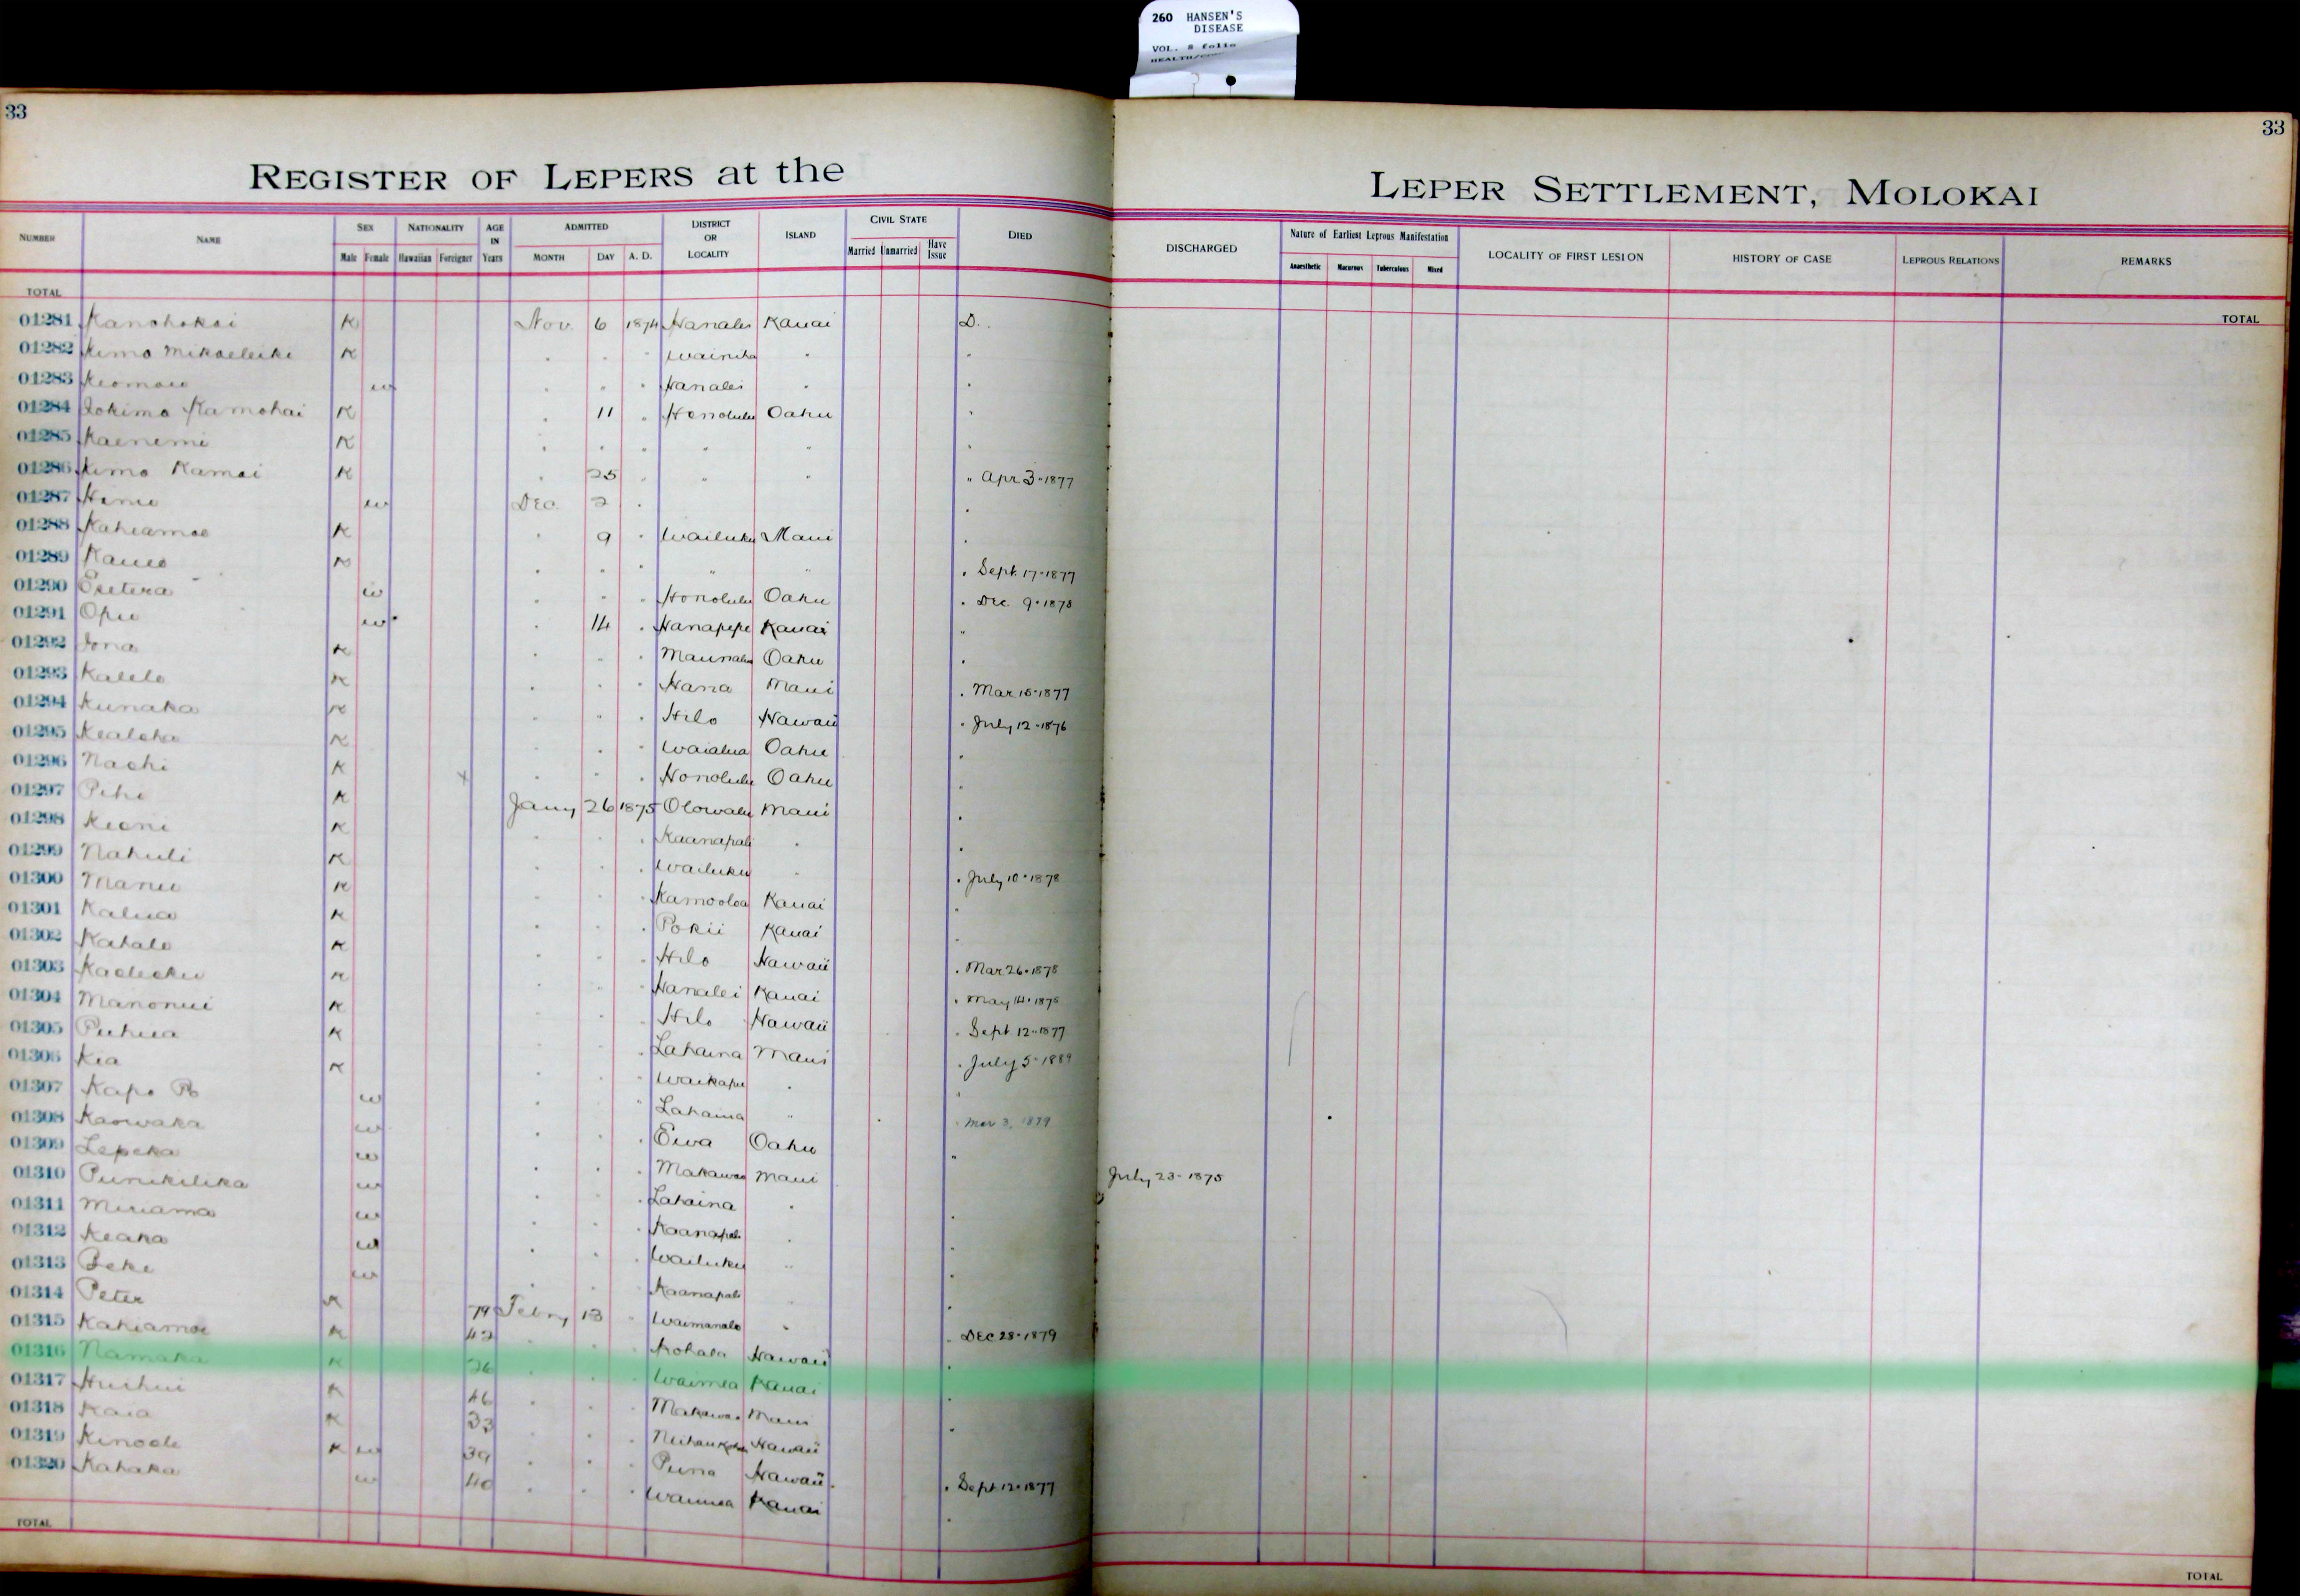 260 HANSEN'S
DISEASE
VOL. 8 folio
33
33
REGISTER OF LEPERS at the LEPER SETTLEMENT, MOLOKAI
NUMBER NAME SEX Male Female NATIONALITY Hawaiian Foreigner AGE IN Years ADMITTED MONTH DAY A. D. DISTRICT OR LOCALITY ISLAND CIVIL STATE Married Unmarried Have Issue DIED DISCHARGED Nature of Earliest Leprous Manifestation Anaesthetic Macurous Tuberculous Mixed LOCALITY OF FIRST LESION HISTORY OF CASE LEPROUS RELATIONS REMARKS
TOTAL TOTAL
01281 Kanohokai K Nov. 6 1874 Hanalei Kauai D.
01282 Kimo Mikaeleiki K " " " Wainiha " "
01283 Keomaio w " " " Hanalei " "
01284 Iokimo Kamohai K " 11 " Honolulu Oahu "
01285 Kaenemi K " " " " " "
01286 Kimo Kamai K " 25 " " " " Apr 3-1877
01287 w Dec. 2 " "
01288 Kahiamoe K " 9 " Wailuku Maui "
01289 Kaueo K " " " " " " Sept. 17-1877
01290 w " " " Honolulu Oahu " Dec. 9-1878
01291 Opu w " 14 " Hanapepe Kauai "
01292 Iona K " " " Maunalua Oahu "
01293 Kalelo K " " " Hana Maui " Mar 15-1877
01294 Kunaka K " " " Hilo Hawaii " July 12-1876
01295 Kealoha K " " " Waialua Oahu "
01296 Naohi K x " " " Honolulu Oahu "
01297 Pihi K Jany 26 1875 Olowalu Maui "
01298 Keoni K " " " Kaanapali " "
01299 Nahuli K " " " Wailuku " " July 10-1878
01300 Manu K " " " Kamooloa Kauai "
01301 Kalua K " " " Pokii Kauai "
01302 Kahalo K " " " Hilo Hawaii " Mar 26-1878
01303 K " " " Hanalei Kauai " May 14-1875
01304 Manonui K " " " Hilo Hawaii " Sept 12-1877
01305 Puhua K " " " Lahaina Maui " July 5-1889
01306 Kia K " " " Waikapu " "
01307 Kapo Po w " " " Lahaina " " Mar 3, 1879
01308 Kaowaka w " " " Ewa Oahu "
01309 Lepeka w " " " Makawao Maui July 23-1875
01310 Punikilika w " " " Lahaina " "
01311 Miriama w " " " Kaanapali " "
01312 Keaka w " " " Wailuku " "
01313 Beke w " " " Kaanapali " "
01314 Peter K 79 Febry 13 " Waimanalo " " Dec 28-1879
01315 Kahiamoe K 42 " " " Kohala Hawaii "
01316 Namaka K 26 " " " Waimea Kauai "
01317 Huihui K 46 " " " Makawao Maui "
01318 Kaia K 33 " " " Hawaii
01319 Kinoole K w 39 " " " Puna Hawaii " Sept 12-1877
01320 Kahaka w 40 " " " Waimea Kauai "
TOTAL TOTAL